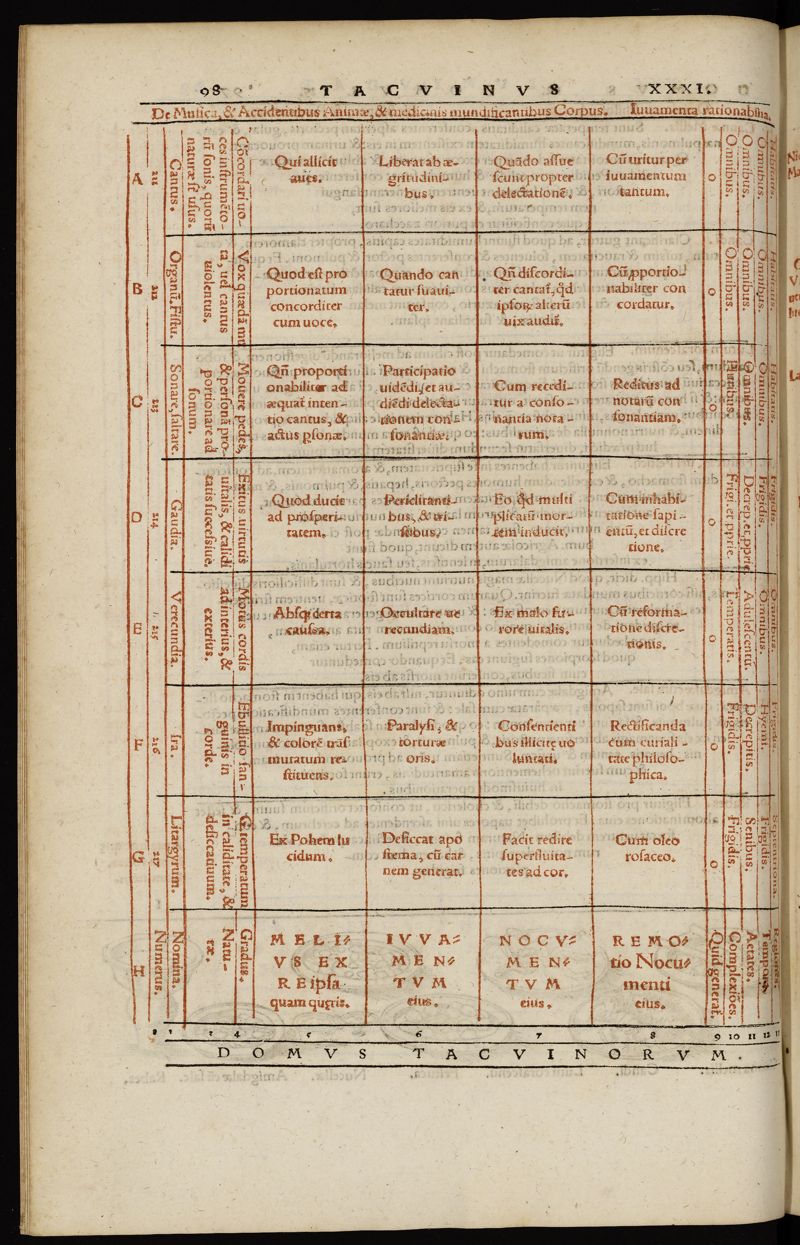 98 TACVINVS XXXI.
De Musica, & Accidentibus Animæ, & medicinis mundificantibus Corpus. Iuuamenta rationabilia,
A
212
Cantus.
Concordari uo-
ces instrumēto-
rū sonis, quorū
naturæ st usus.
Qui allicit
aues.
Liberat ab æ-
gritudini-
bus.
Quādo assue
scunt propter
delectationē.
Cū utitur per
iuuamentum
tantum.
o
Omnibus.
Omnibus.
Omnibus.
B
Organū, Fistu.
Vox quædā mu
ta, uel cantus
uiolentus.
Quod est pro
portionatum
concorditer
cum uoce.
Quando can
tatur suaui-
ter.
Qñ discordi-
ter cantat, qđ
ipsoꝝ alterū
uix audit.
Cū pportio-
nabiliter con
cordatur.
o
Omnibus.
Omnibus.
Omnibus.
C
213
Sonare, saltare.
Mouere pedes,
& personā pro-
portionare ad
sonum.
Qñ proporti
onabiliter ad
æquat inten-
tio cantus, &
actus psonæ.
Participatio
uidēdi, et au-
diēdi delecta-
tionem con-
sonantiæ.
Cum recedi-
tur a conso-
nantia nota-
rum.
Reditus ad
notarū con
sonantiam.
o
Omnibus.
Omnibus.
D
214
Gaudia.
Exitus uirtutis
uitalis, & calidi
tatis successiue.
Quod ducit
ad prosperi-
tatem.
Periclitanti-
bus, & tri-
stibus.
Eo qđ multi
plicatū mor-
tem inducit.
Cum inhabi-
tatione sapi-
entū, et discre
tione.
o
Frigi. et pprie.
Decrep. et pprie.
Frigidis.
Frigidis.
E
215
Verecundia.
Motus cordis
ad interius, &
exterius.
Absq; certa
caussa.
Occultare ue
recundiam.
Ex malo fu-
rore uitalis.
Cū reforma-
tione discre-
tionis.
o
Temperatis.
Adolescentū.
Omnibus.
Omnibus.
F
216
Ira.
Ebulitio san-
guinis in
corde.
Impinguans,
& colorē trās
mutatum re-
stituens.
Paralysi, &
torturæ
oris.
Consentienti
bus illicite uo
luntati.
Rectificanda
cum curiali-
tate philoso-
phica.
o
Frigidis.
Decrepitis.
Hyemi.
Frigidis.
G
217
Litargyrum.
Contemperatum
in caliditate, &
desiccatiuum.
Ex Pohem lu
cidum.
Desiccat apo
stema, cū car
nem generat.
Facit redire
superfluita-
tes ad cor.
Cum oleo
rosaceo.
o
Frigidis.
Senibus.
Frigidis.
Septentriona.
H
Numerus.
Nomina.
Natu-
ræ.
Gradus.
MELI⸗
VS EX
RE ipsa
quam quęris.
IVVA⸗
MEN⸗
TVM
eius.
NOCV⸗
MEN⸗
TVM
eius.
REMO⸗
tio Nocu⸗
menti
eius.
Quid generat.
Complexiōes.
Aetates.
Tempora.
Regiones.
4 5 6 7 8 9 10 11 12
DOMVS TACVINORVM.